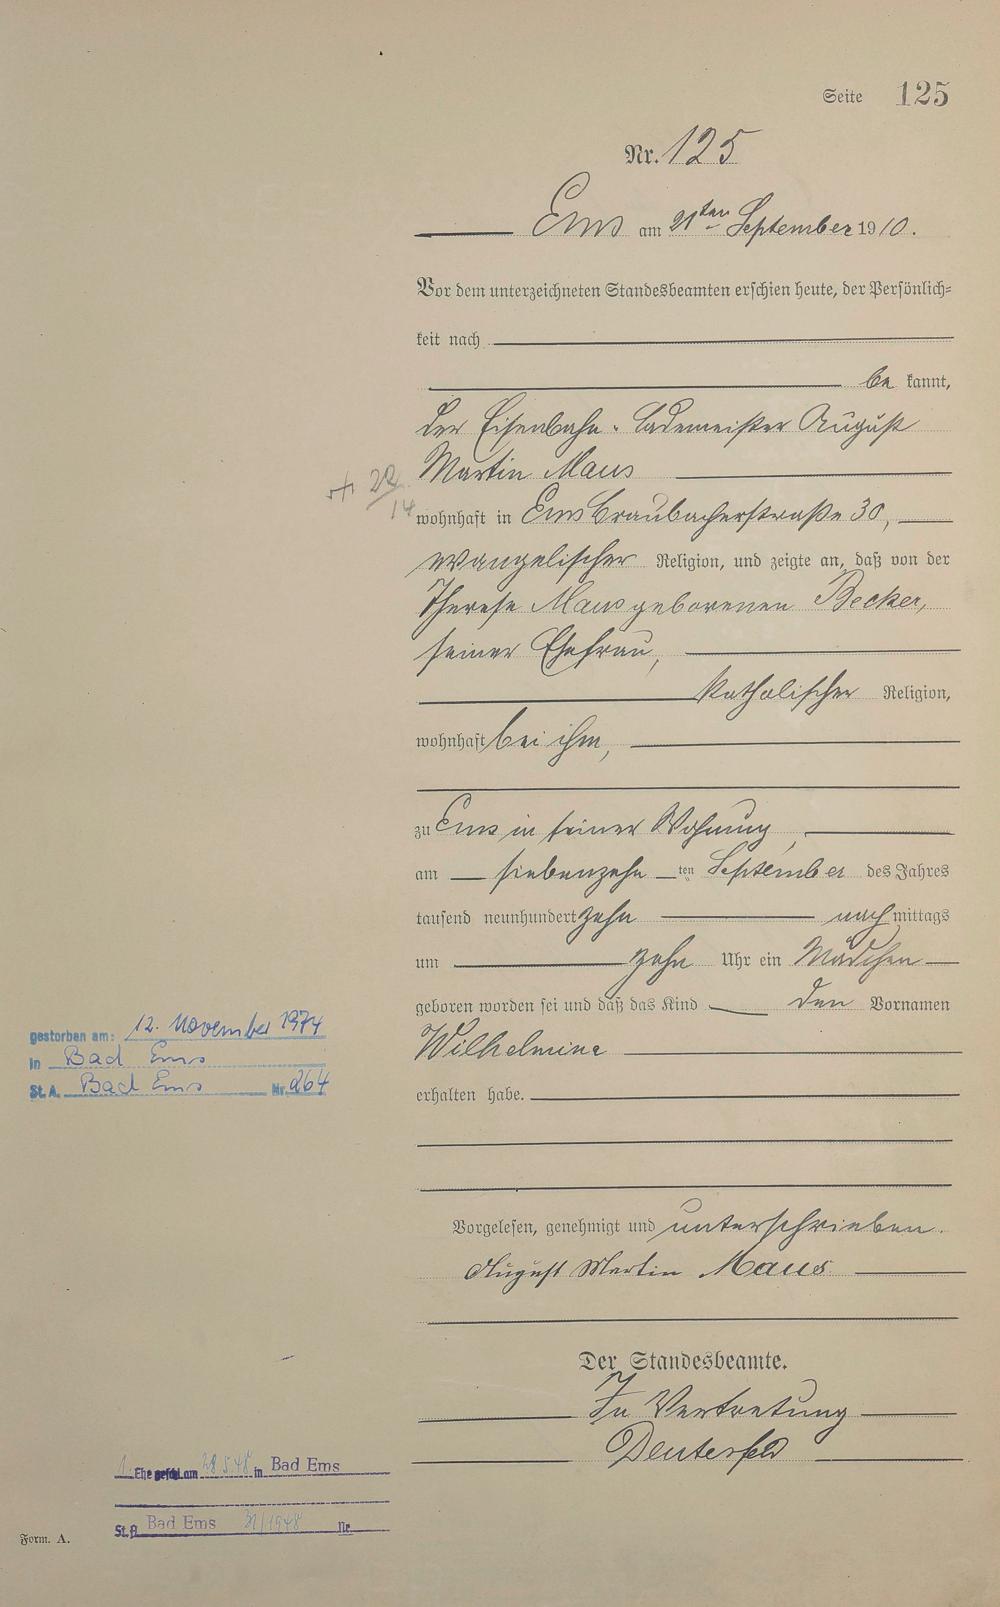 Seite 125
Nr. 125
Ems am 21ten September 1910.
Vor dem unterzeichneten Standesbeamten erschien heute, der Persönlich=
keit nach
be kannt,
der Eisenbahn-Lademeister August
Martin Maus
wohnhaft in Ems Braubacherstraße 30,
evangelischer Religion, und zeigte an, daß von der
Therese Maus geborenen Becker,
seiner Ehefrau,
katholischer Religion,
wohnhaft bei ihm,
zu Ems in seiner Wohnung,
am siebenzehn ten September des Jahres
tausend neunhundert zehn nach mittags
um zehn Uhr ein Mädchen
geboren worden sei und daß das Kind den Vornamen
Wilhelmine
erhalten habe.
Vorgelesen, genehmigt und unterschrieben.
August Martin Maus
Der Standesbeamte.
In Vertretung
gestorben am: 12. November 1974
in Bad Ems
St. A. Bad Ems Nr. 264
1. Ehe geschl. am 28.5.48 in Bad Ems
St. A. Bad Ems 31/1948 Nr.
Form. A.